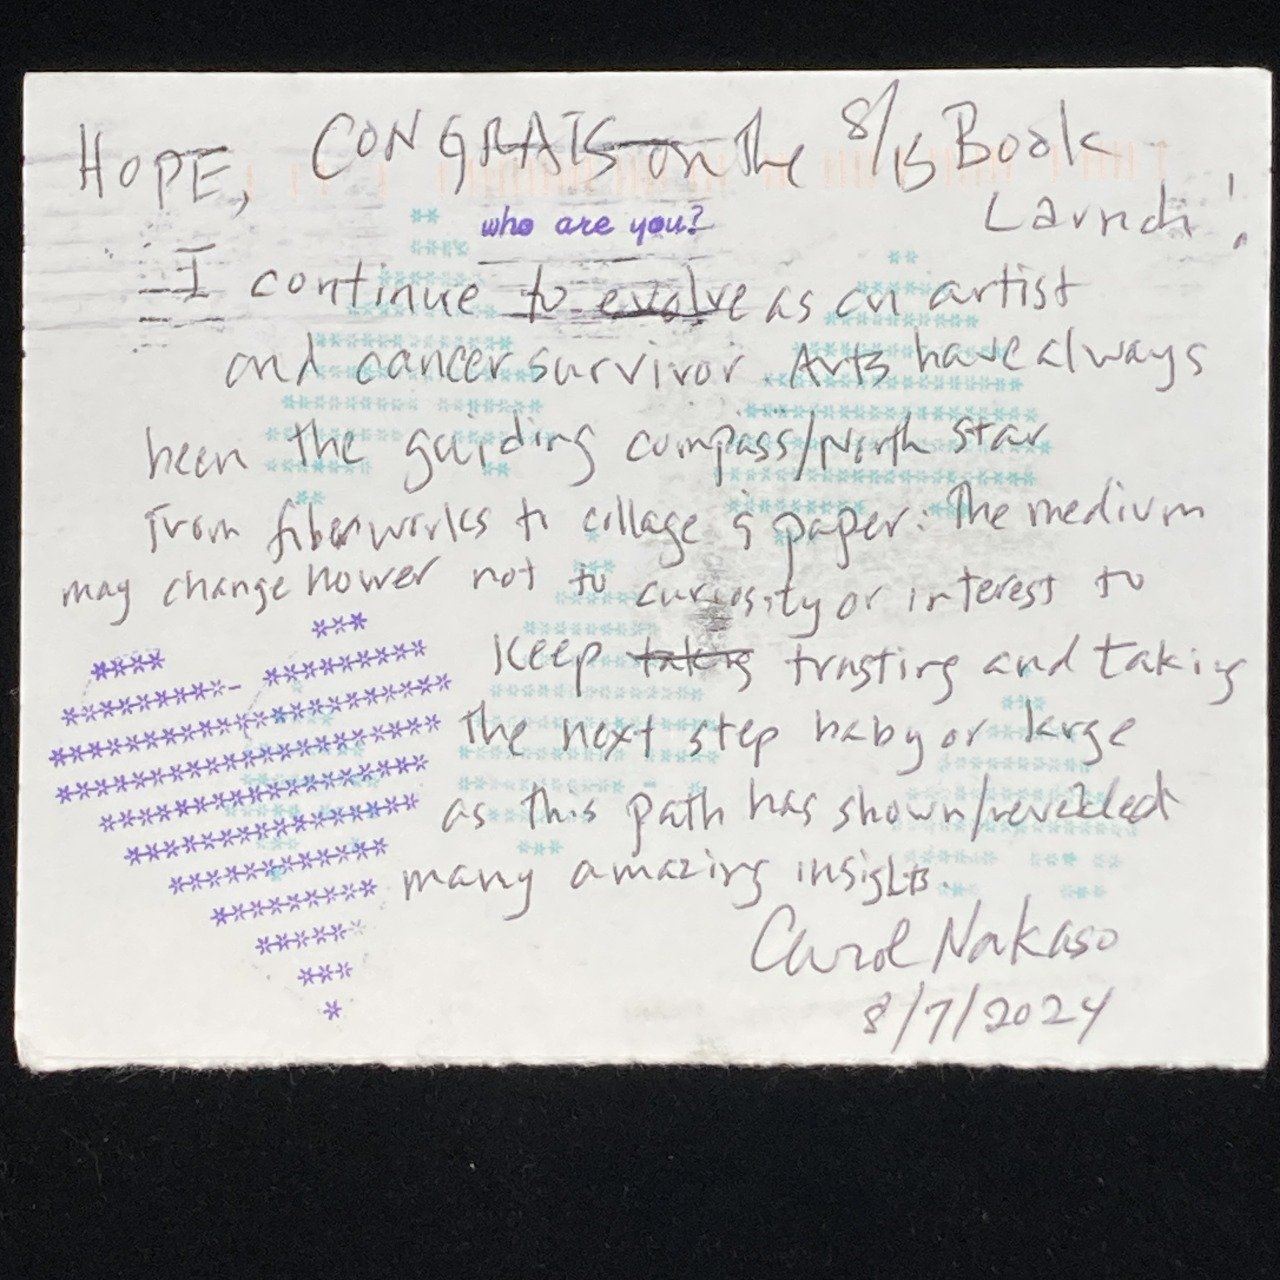 HOPE, CONGRATS on the 8/15 Book
Launch!
who are you?
I continue to evolve as an artist
and cancer survivor. Arts have always
been the guiding compass/North star
From fiberworks to collage & paper. The medium
may change howver not to curiosity or interest to
Keep taking trusting and taking
the next step baby or large
as this path has shown/revealed
many amazing insights.
Carol Nakaso
8/7/2024